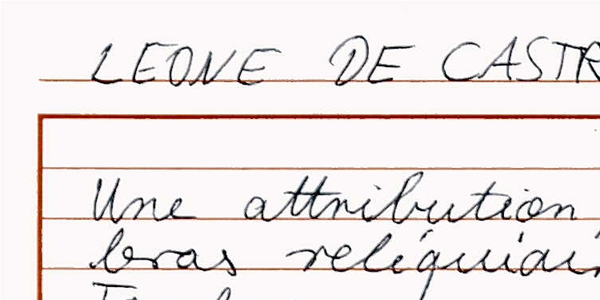 LEONE DE CASTR
Une attribution
bras reliquiai